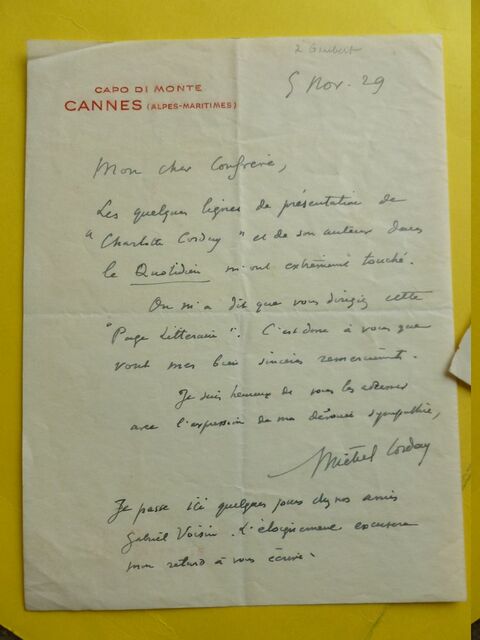 à Guibert
5 Nov. 29
CAPO DI MONTE
CANNES (ALPES-MARITIMES)
Mon cher Confrère,
Les quelques lignes de présentation de
"Charlotte Corday" et de son auteur dans
le Quotidien m'ont extrêmement touché.
On m'a dit que vous dirigiez cette
"Page Littéraire". C'est donc à vous que
vont mes bien sincères remerciements.
Je suis heureux de vous les adresser
avec l'expression de ma dévouée sympathie,
Michel Corday
Je passe ici quelques jours chez nos amis
Gabriel Voisin. L'éloignement excusera
mon retard à vous écrire.